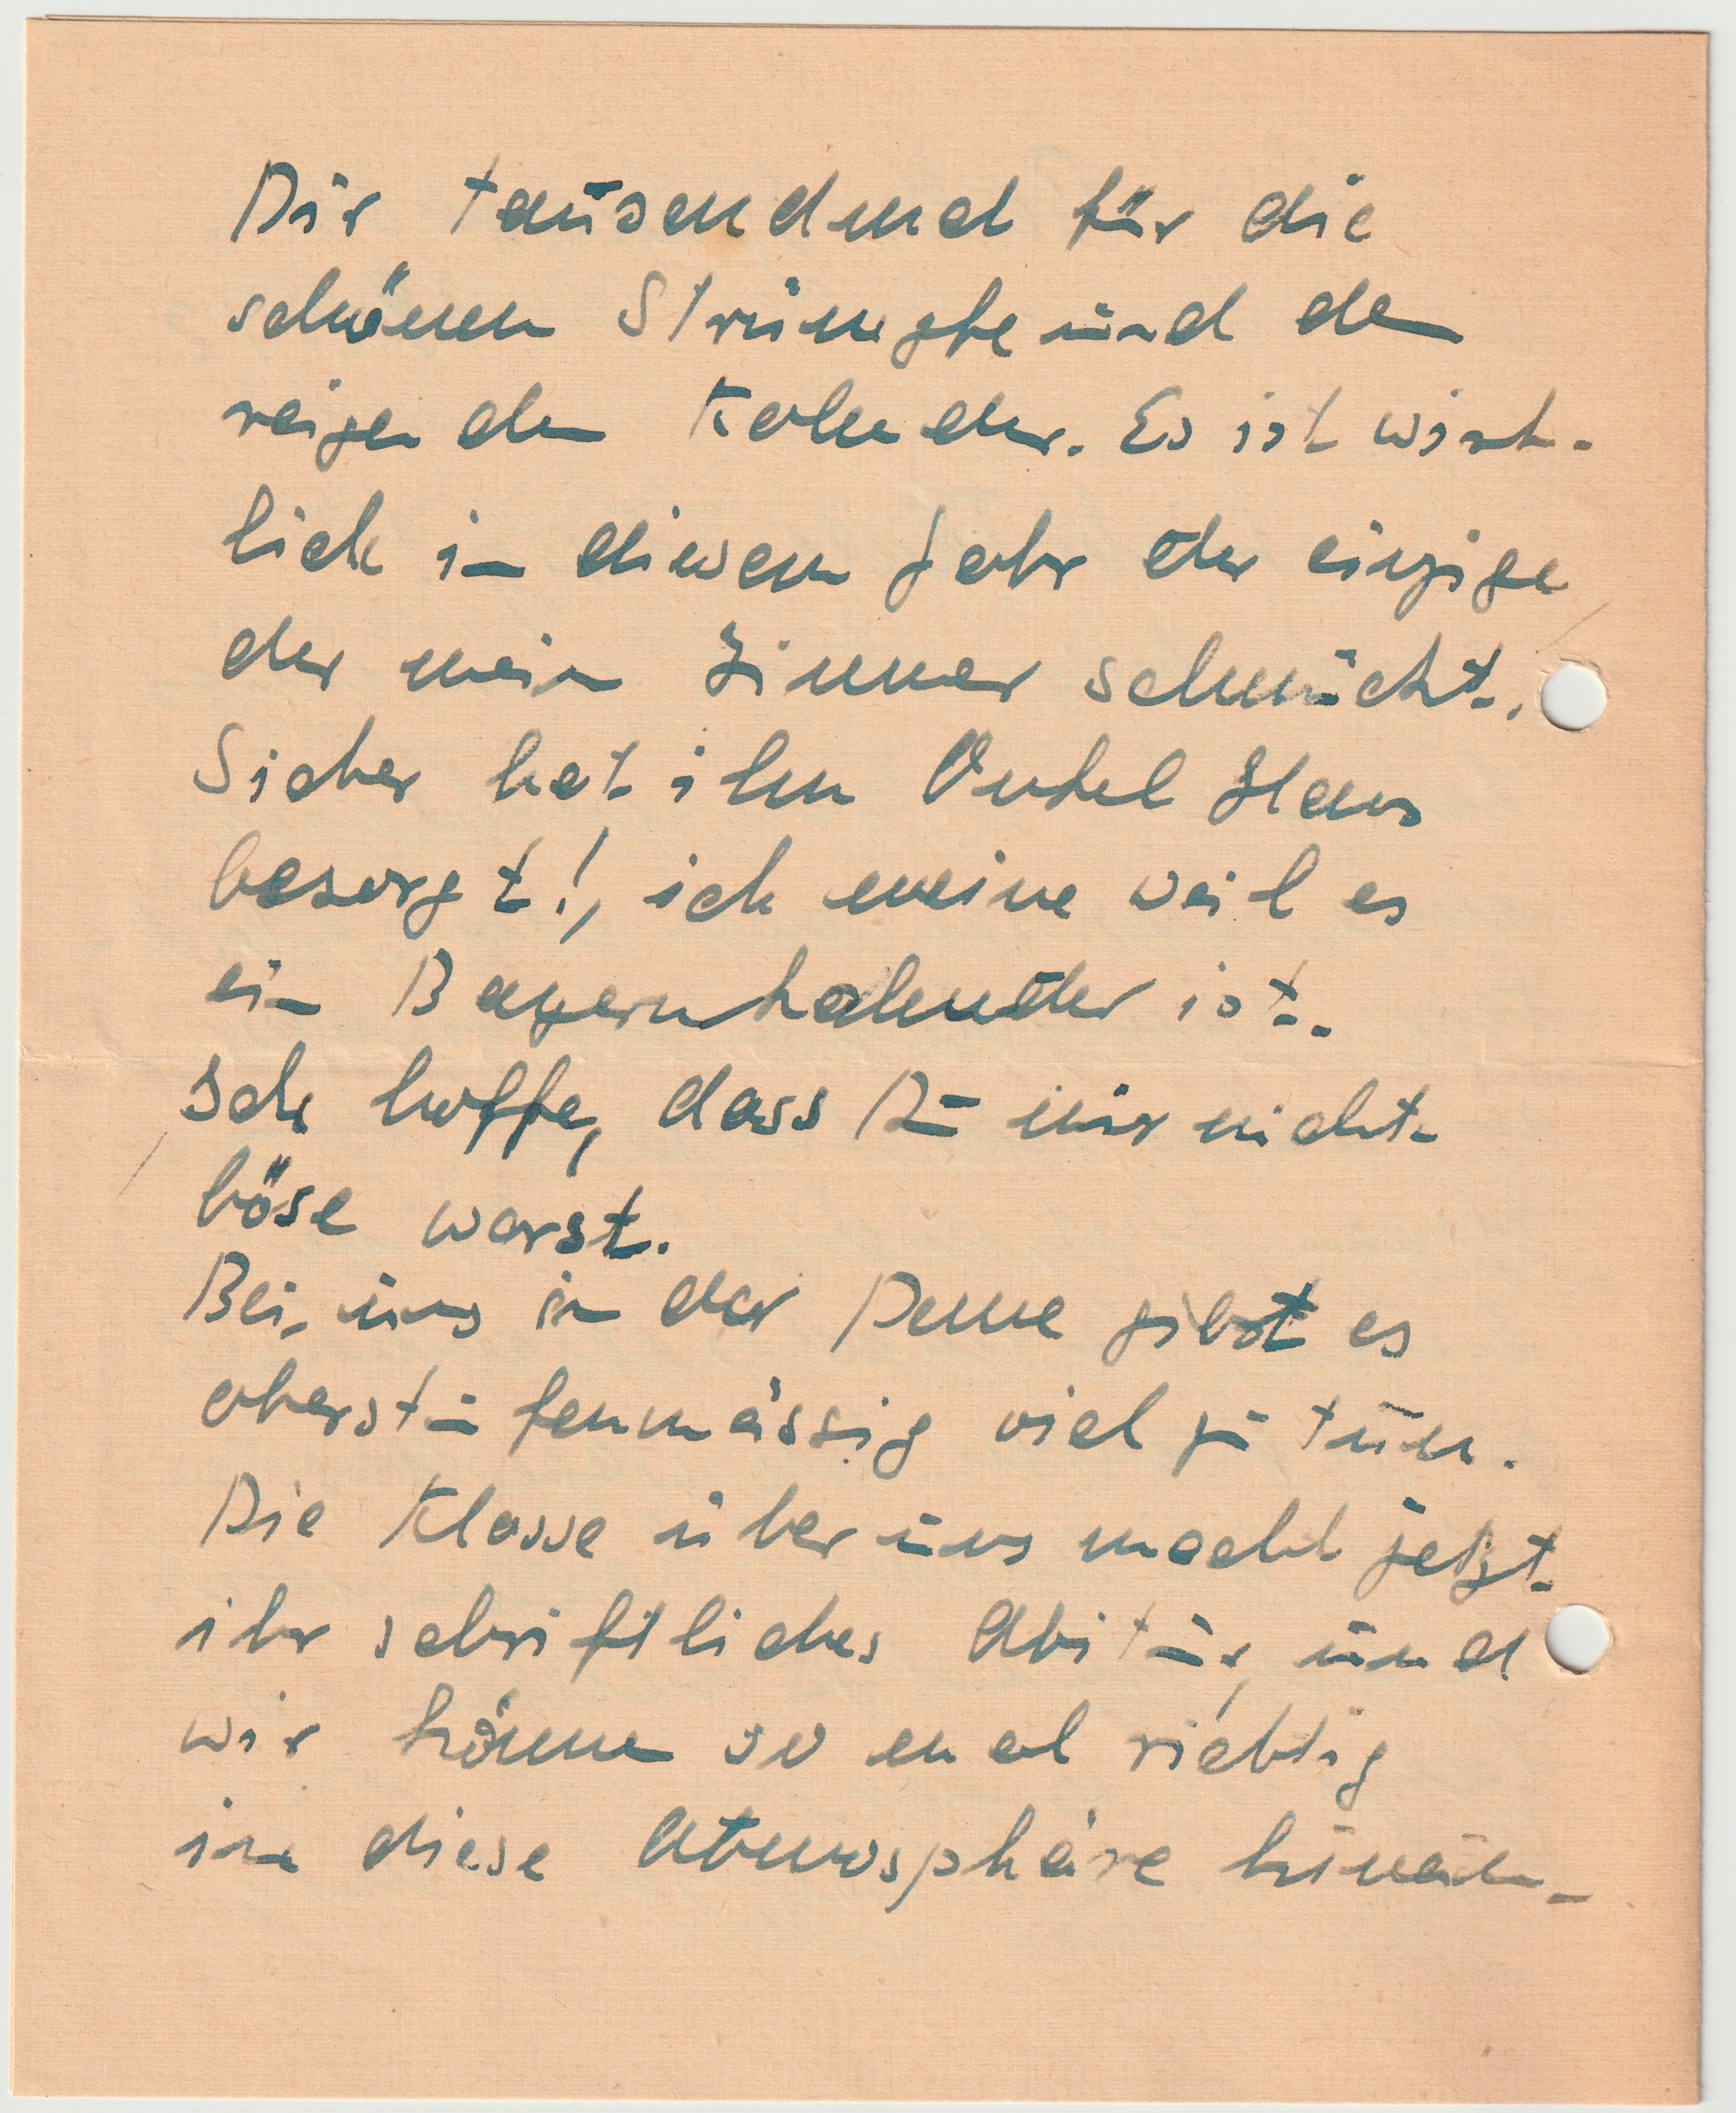 Dir tausendmal für die
schönen Strümpfe und den
reizenden Kalender. Es ist wirk-
lich in diesem Jahr der einzige
der mein Zimmer schmückt.
Sicher hat ihn Onkel Hans
besorgt!, ich meine weil es
ein Bayernkalender ist.
Ich hoffe, dass Du mir nicht
böse warst.
Bei uns in der Penne gibt es
oberstufenmässig viel zu tun.
Die Klasse über uns macht jetzt
ihr schriftliches Abitur, und
wir können so mal richtig
in diese Atmosphäre hinein-